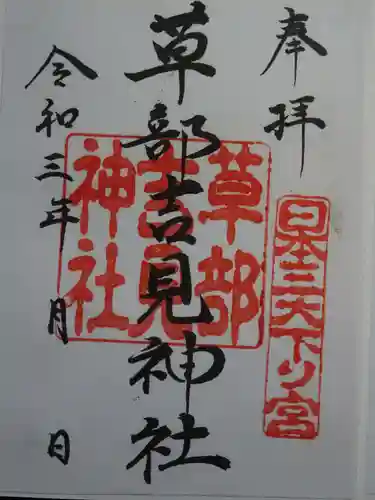 奉拝
日本三大下り宮
草部吉見神社
草部
吉見
神社
令和三年 月 日